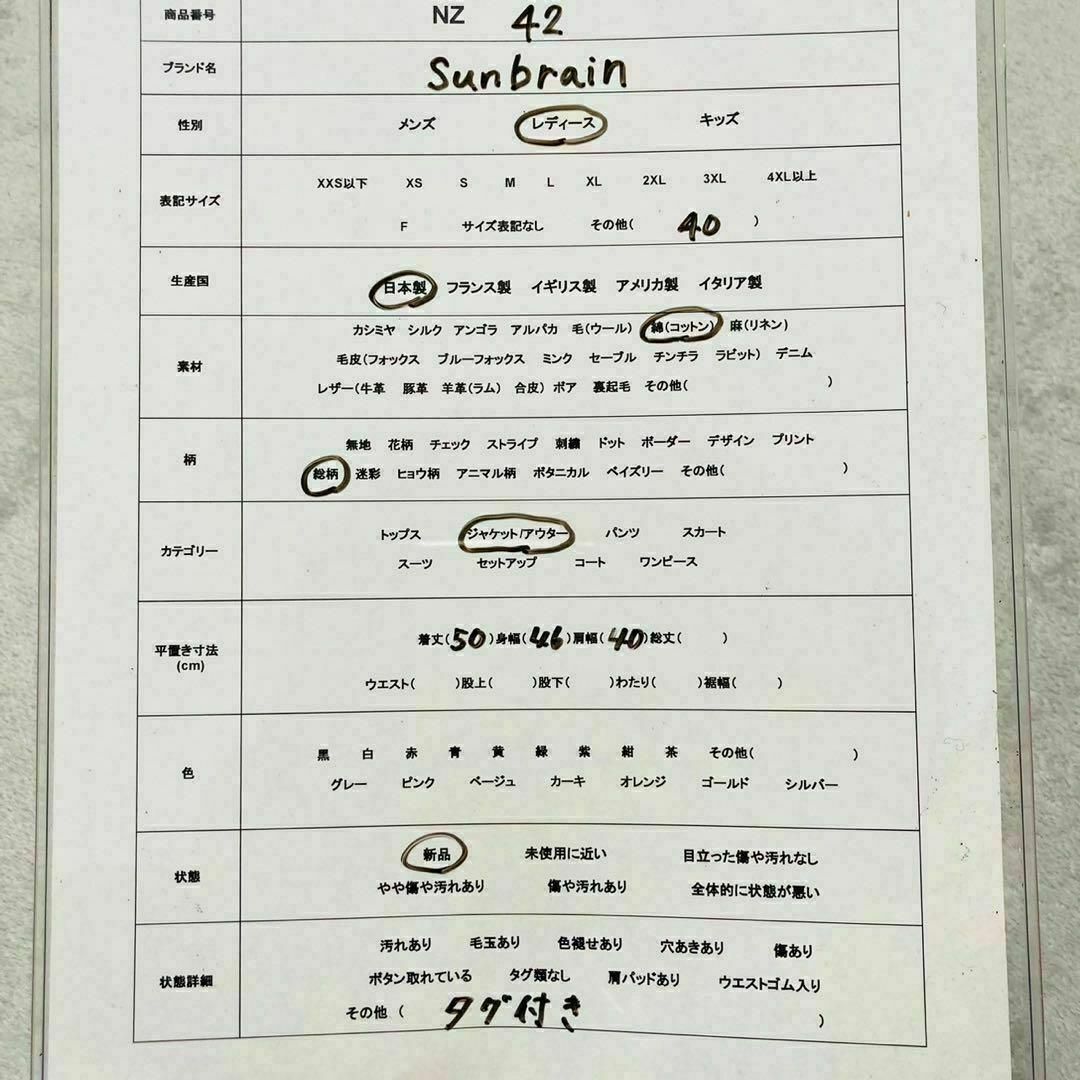 商品番号 NZ 42
ブランド名 Sunbrain
性別 メンズ レディース キッズ
表記サイズ
XXS以下 XS S M L XL 2XL 3XL 4XL以上
F サイズ表記なし その他( 40 )
生産国 日本製 フランス製 イギリス製 アメリカ製 イタリア製
素材
カシミヤ シルク アンゴラ アルパカ 毛(ウール) 綿(コットン) 麻(リネン)
毛皮(フォックス ブルーフォックス ミンク セーブル チンチラ ラビット) デニム
レザー(牛革 豚革 羊革(ラム) 合皮) ボア 裏起毛 その他( )
柄
無地 花柄 チェック ストライプ 刺繍 ドット ボーダー デザイン プリント
総柄 迷彩 ヒョウ柄 アニマル柄 ボタニカル ペイズリー その他( )
カテゴリー
トップス ジャケット/アウター パンツ スカート
スーツ セットアップ コート ワンピース
平置き寸法
(cm)
着丈(50)身幅(46)肩幅(40)総丈( )
ウエスト( )股上( )股下( )わたり( )裾幅( )
色
黒 白 赤 青 黄 緑 紫 紺 茶 その他( )
グレー ピンク ベージュ カーキ オレンジ ゴールド シルバー
状態
新品 未使用に近い 目立った傷や汚れなし
やや傷や汚れあり 傷や汚れあり 全体的に状態が悪い
状態詳細
汚れあり 毛玉あり 色褪せあり 穴あきあり 傷あり
ボタン取れている タグ類なし 肩パッドあり ウエストゴム入り
その他 ( タグ付き )